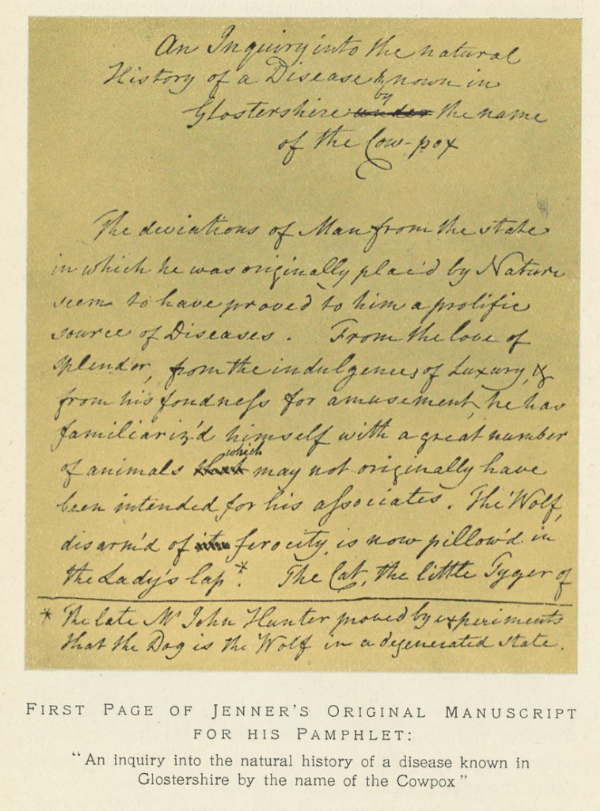 An Inquiry into the natural
History of a Disease known in
by
Glostershire under the name
of the Cow-pox
The deviations of Man from the state
in which he was originally plac'd by Nature
seem to have proved to him a prolific
source of Diseases. From the love of
splendor, from the indulgences of Luxury, &
from his fondness for amusement, he has
familiariz'd himself with a great number
which
of animals that may not originally have
been intended for his associates. The Wolf,
disarm'd of its ferocity, is now pillow'd in
the Lady's lap*. The Cat, the little Tyger of
* The late Mr John Hunter proved by experiments
that the Dog is the Wolf in a degenerated state.
FIRST PAGE OF JENNER'S ORIGINAL MANUSCRIPT
FOR HIS PAMPHLET:
"An inquiry into the natural history of a disease known in
Glostershire by the name of the Cowpox"